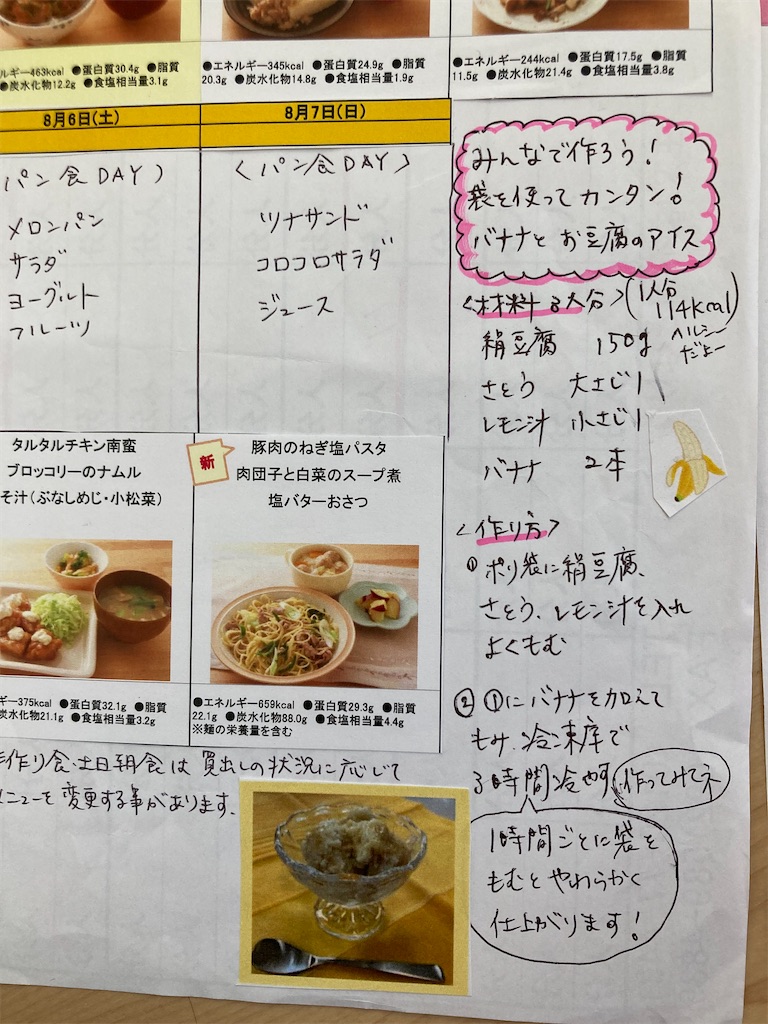 ルギー463kcal ●蛋白質30.4g ●脂質
●炭水化物12.2g ●食塩相当量3.1g
●エネルギー345kcal ●蛋白質24.9g ●脂質
20.3g ●炭水化物14.8g ●食塩相当量1.9g
●エネルギー244kcal ●蛋白質17.5g ●脂質
11.5g ●炭水化物21.4g ●食塩相当量3.8g
8月6日(土)
パン食DAY〉
メロンパン
サラダ
ヨーグルト
フルーツ
8月7日(日)
〈パン食DAY〉
ツナサンド
コロコロサラダ
ジュース
タルタルチキン南蛮
ブロッコリーのナムル
そ汁(ぶなしめじ・小松菜)
ギー375kcal ●蛋白質32.1g ●脂質
炭水化物21.1g ●食塩相当量3.2g
新
豚肉のねぎ塩パスタ
肉団子と白菜のスープ煮
塩バターおさつ
●エネルギー659kcal ●蛋白質29.3g ●脂質
22.1g ●炭水化物88.0g ●食塩相当量4.4g
※麺の栄養量を含む
作り食、土日朝食は買出しの状況に応じて
メニューを変更する事があります。
みんなで作ろう!
袋を使ってカンタン!
バナナとお豆腐のアイス
〈材料3人分〉(1人分
114kcal)
ヘルシー
だよー
絹豆腐 150g
さとう 大さじ1
レモン汁 小さじ1
バナナ 2本
〈作り方〉
① ポリ袋に絹豆腐、
さとう、レモン汁を入れ
よくもむ
② ①にバナナを加えて
もみ、冷凍庫で
3時間冷やす
作ってみてネ
1時間ごとに袋を
もむとやわらかく
仕上がります!